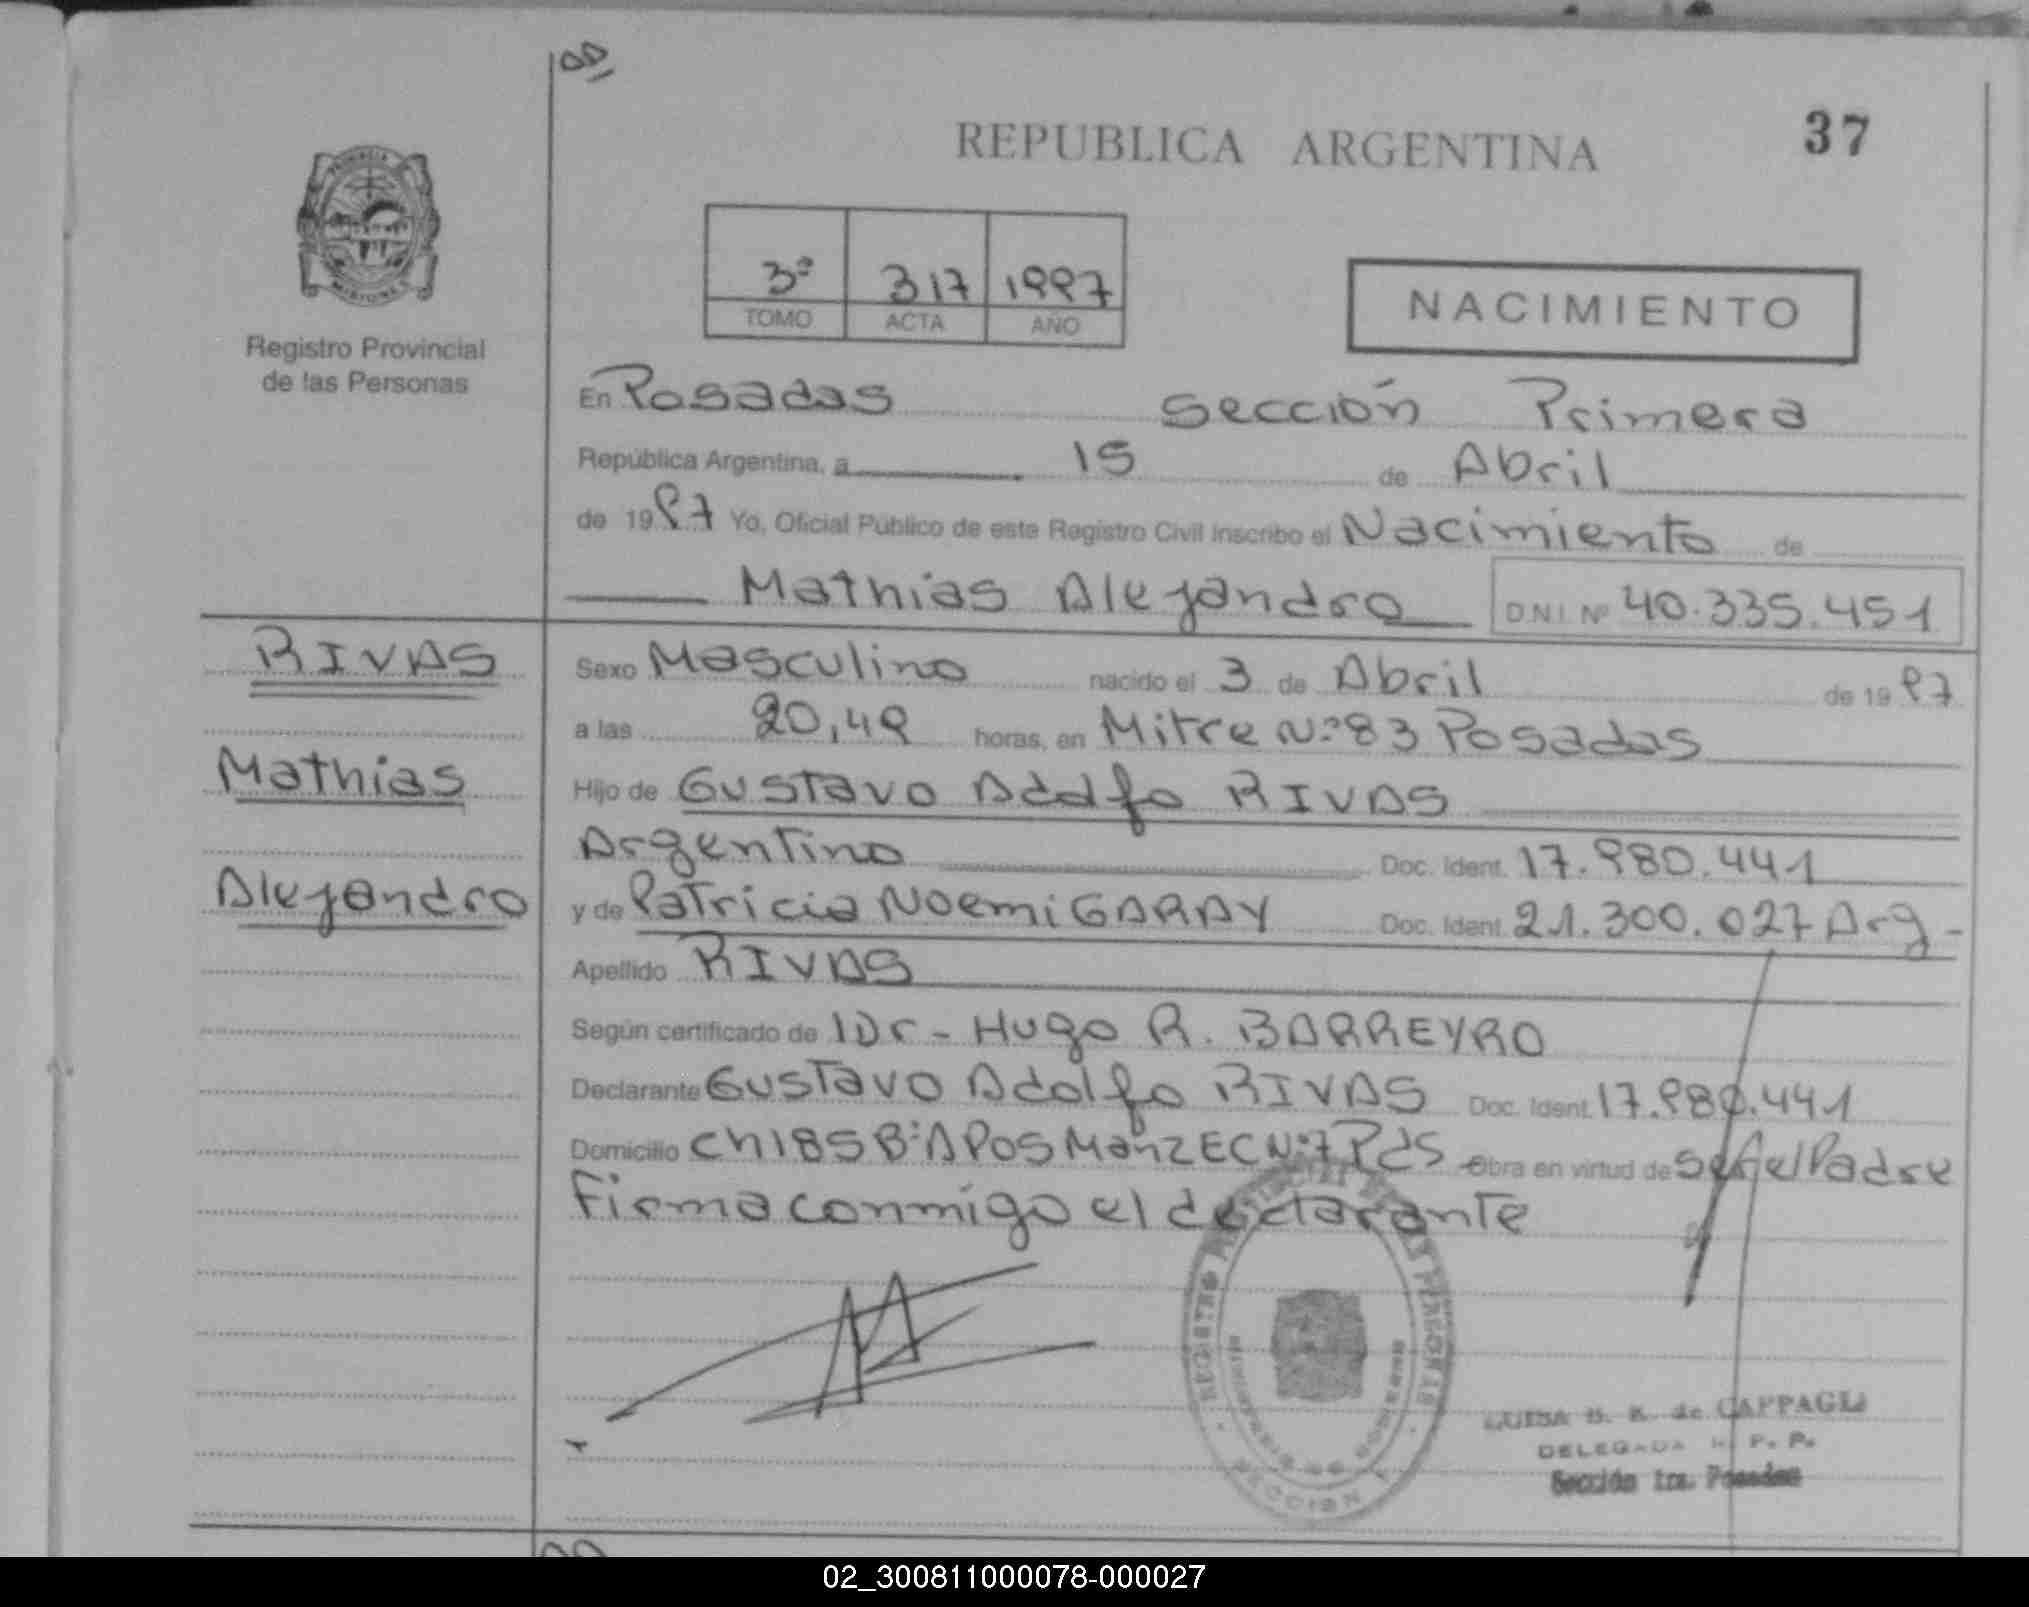 REPUBLICA ARGENTINA
37
MISIONES
Registro Provincial
de las Personas
3º 317 1997
TOMO ACTA AÑO
NACIMIENTO
En Posadas Sección Primera
República Argentina, a 15 de Abril
de 1997 Yo, Oficial Público de este Registro Civil inscribo el Nacimiento de
Mathias Alejandro D.N.I. Nº 40.335.451
RIVAS
Mathias
Alejandro
Sexo Masculino nacido el 3 de Abril de 1997
a las 20,49 horas, en Mitre Nº 83 Posadas
Hijo de Gustavo Adolfo RIVAS
Argentino Doc. Ident. 17.980.441
y de Patricia Noemi GARAY Doc. Ident. 21.300.027 Arg-
Apellido RIVAS
Según certificado de Dr- Hugo R. BARREYRO
Declarante Gustavo Adolfo RIVAS Doc. Ident. 17.980.441
Domicilio Ch185 Bº A POS Manz E C Nº 7 Pds Obra en virtud de ser el Padre
Firma conmigo el declarante
REGISTRO PROVINCIAL DE LAS PERSONAS
MINISTERIO DE GOBIERNO
SECCION 1
LUISA B. K. de CAPPAGLI
DELEGADA R. P. P.
Sección 1ra. Posadas
02_300811000078-000027